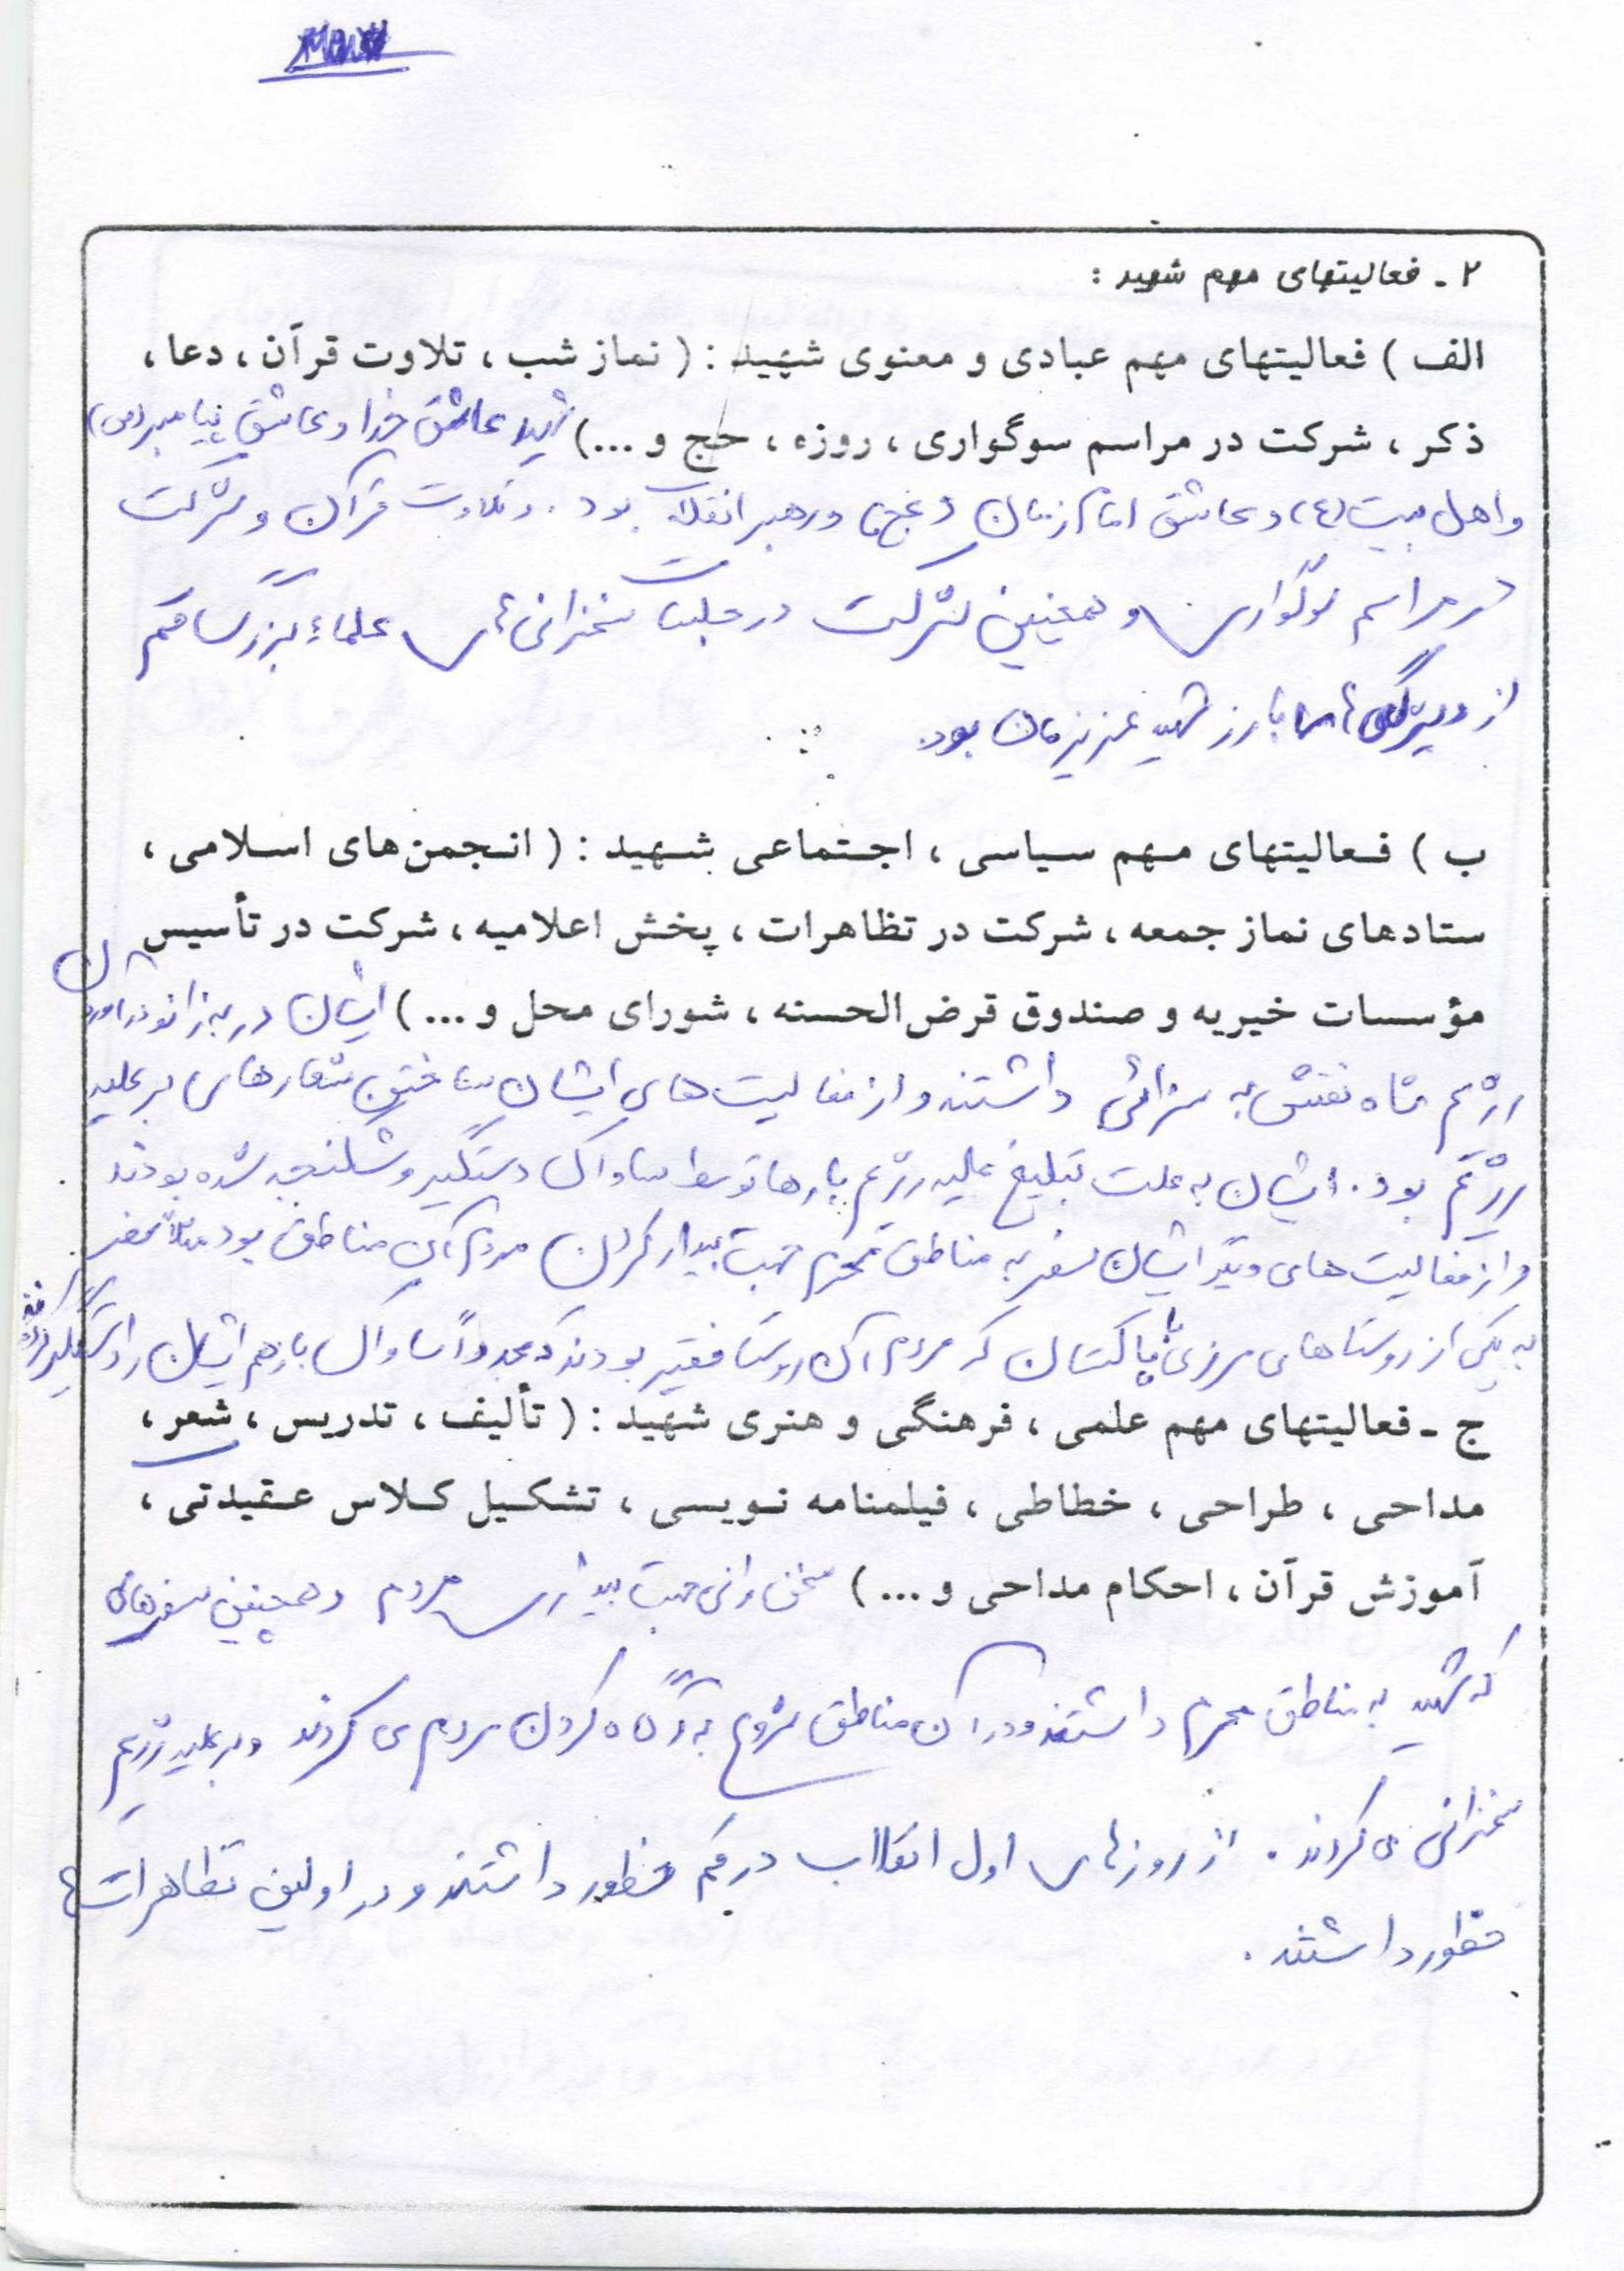 ۲ ـ فعالیتهای مهم شهید :
الف ) فعالیتهای مهم عبادی و معنوی شهید : ( نماز شب ، تلاوت قرآن ، دعا ،
ذکر ، شرکت در مراسم سوگواری ، روزه ، حج و ...) شهید عاشق خدا و عاشق پیامبر (ص)
و اهل بیت (ع) و عاشق امام زمان (عج) و رهبر انقلاب بود . و تلاوت قرآن و شرکت
در مراسم سوگواری و همچنین شرکت در جلسات سخنرانی های علماء بزرگ قم
از ویژگی های بارز شهید عزیزمان بود.
ب ) فعالیتهای مهم سیاسی ، اجتماعی شهید : ( انجمن‌های اسلامی ،
ستادهای نماز جمعه ، شرکت در تظاهرات ، پخش اعلامیه ، شرکت در تأسیس
مؤسسات خیریه و صندوق قرض‌الحسنه ، شورای محل و ... ) ایشان در به زانو درآوردن
رژیم شاه نقش به سزائی داشتند و از فعالیت های ایشان ساختن شعارهای بر علیه
رژیم بود . ایشان به علت تبلیغ علیه رژیم بارها توسط ساواک دستگیر و شکنجه شده بودند
و از فعالیت های دیگر ایشان سفر به مناطق محروم جهت بیدار کردن مردم آن مناطق بود مثلاً سفر
به یکی از روستاهای مرزی با پاکستان که مردم آن روستا فقیر بودند که مجدداً ساواک باز هم ایشان را دستگیر
ج ـ فعالیتهای مهم علمی ، فرهنگی و هنری شهید : ( تألیف ، تدریس ، شعر ،
مداحی ، طراحی ، خطاطی ، فیلمنامه نویسی ، تشکیل کلاس عقیدتی ،
آموزش قرآن ، احکام مداحی و ... ) سخنرانی جهت بیداری مردم و همچنین سفرهای
که شهید به مناطق محروم داشتند و در آن مناطق شروع به آگاه کردن مردم می کردند و بر علیه رژیم
سخنرانی می کردند . از روزهای اول انقلاب در قم حظور داشتند و در اولین تظاهرات ها
حظور داشتند .